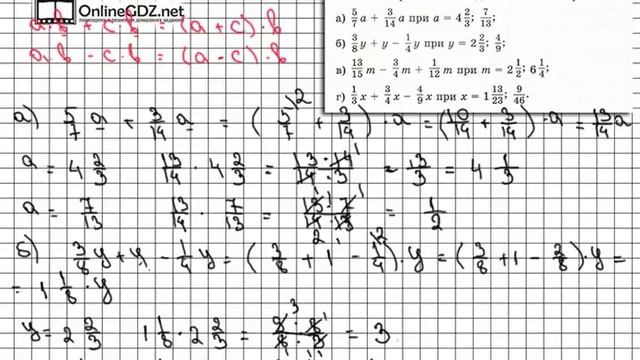 OnlineGDZ.net
помощники в решении домашних заданий
a·b + c·b = (a+c)·b
a·b - c·b = (a-c)·b
а) 5/7 a + 3/14 a при a = 4 2/3; 7/13;
б) 3/8 y + y - 1/4 y при y = 2 2/3; 4/9;
в) 13/15 m - 3/4 m + 1/12 m при m = 2 1/2; 6 1/4;
г) 1/3 x + 3/4 x - 4/9 x при x = 1 13/23; 9/46.
а) 5/7 a + 3/14 a = (5/7 + 3/14)·a = (10/14 + 3/14)·a = 13/14 a
a = 4 2/3 13/14 · 4 2/3 = 13·14/14·3 = 13/3 = 4 1/3
a = 7/13 13/14 · 7/13 = 13·7/14·13 = 1/2
б) 3/8 y + y - 1/4 y = (3/8 + 1 - 1/4)·y = (3/8 + 1 - 2/8)·y =
= 1 1/8 · y
y = 2 2/3 1 1/8 · 2 2/3 = 9·8/8·3 = 3